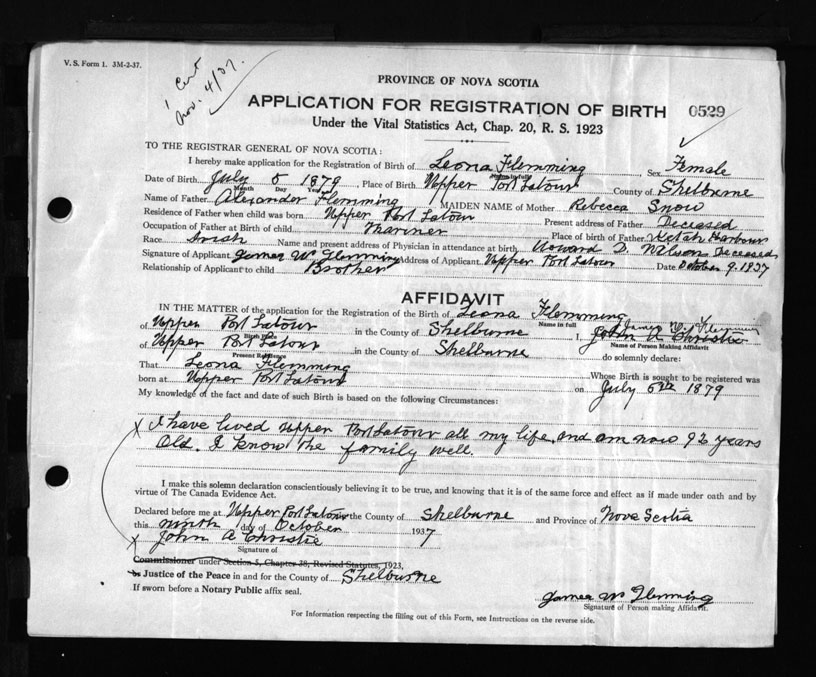 V. S. Form 1. 3M-2-37.
1 Cert
Nov. 4/37.
PROVINCE OF NOVA SCOTIA
APPLICATION FOR REGISTRATION OF BIRTH 0529
Under the Vital Statistics Act, Chap. 20, R. S. 1923
TO THE REGISTRAR GENERAL OF NOVA SCOTIA:
I hereby make application for the Registration of Birth of Leona Flemming Sex Female
Name in full
Date of Birth July 5 1879, Place of Birth Upper Port Latour County of Shelburne
Month Day Year
Name of Father Alexander Flemming MAIDEN NAME of Mother Rebecca Snow
Residence of Father when child was born Upper Port Latour Present address of Father Deceased
Occupation of Father at Birth of child Mariner Place of birth of Father Ketch Harbour
Race Irish Name and present address of Physician in attendance at birth Howard D. Wilson Deceased
Signature of Applicant James W Flemming Address of Applicant Upper Port Latour Date October 9. 1937
Relationship of Applicant to child Brother
AFFIDAVIT
IN THE MATTER of the application for the Registration of the Birth of Leona Flemming
Name in full
James W Flemming
of Upper Port Latour in the County of Shelburne I, John A Christie
Birth Place
Name of Person Making Affidavit
of Upper Port Latour in the County of Shelburne do solemnly declare:
Present Residence
That Leona Flemming Whose Birth is sought to be registered was
born at Upper Port Latour on July 5th 1879
My knowledge of the fact and date of such Birth is based on the following Circumstances:
X I have lived Upper Port Latour all my life, and am now 92 years
Old. I know the family well.
I make this solemn declaration conscientiously believing it to be true, and knowing that it is of the same force and effect as if made under oath and by
virtue of The Canada Evidence Act.
Declared before me at Upper Port Latour the County of Shelburne and Province of Nova Scotia
this ninth day of October 1937
X John A Christie
Signature of
Commissioner under Section 5, Chapter 38, Revised Statutes, 1923,
or Justice of the Peace in and for the County of Shelburne
If sworn before a Notary Public affix seal.
James W Flemming
Signature of Person making Affidavit.
For Information respecting the filling out of this Form, see Instructions on the reverse side.